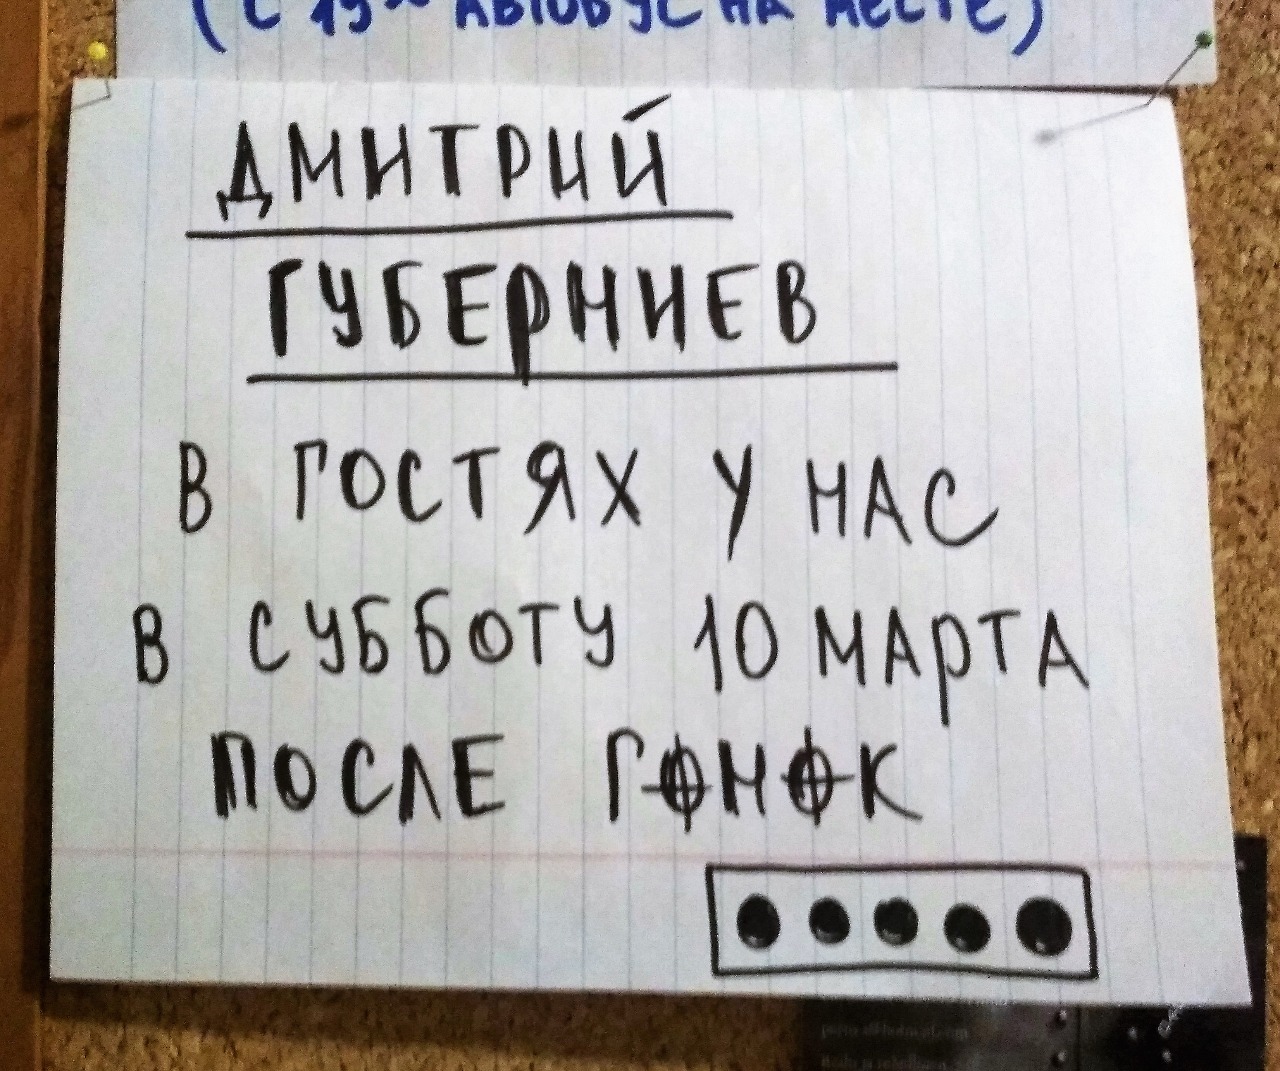 (С 19⁰⁰ АВТОБУС НА МЕСТЕ)
ДМИТРИЙ
ГУБЕРНИЕВ
В ГОСТЯХ У НАС
В СУББОТУ 10 МАРТА
ПОСЛЕ ГОНОК